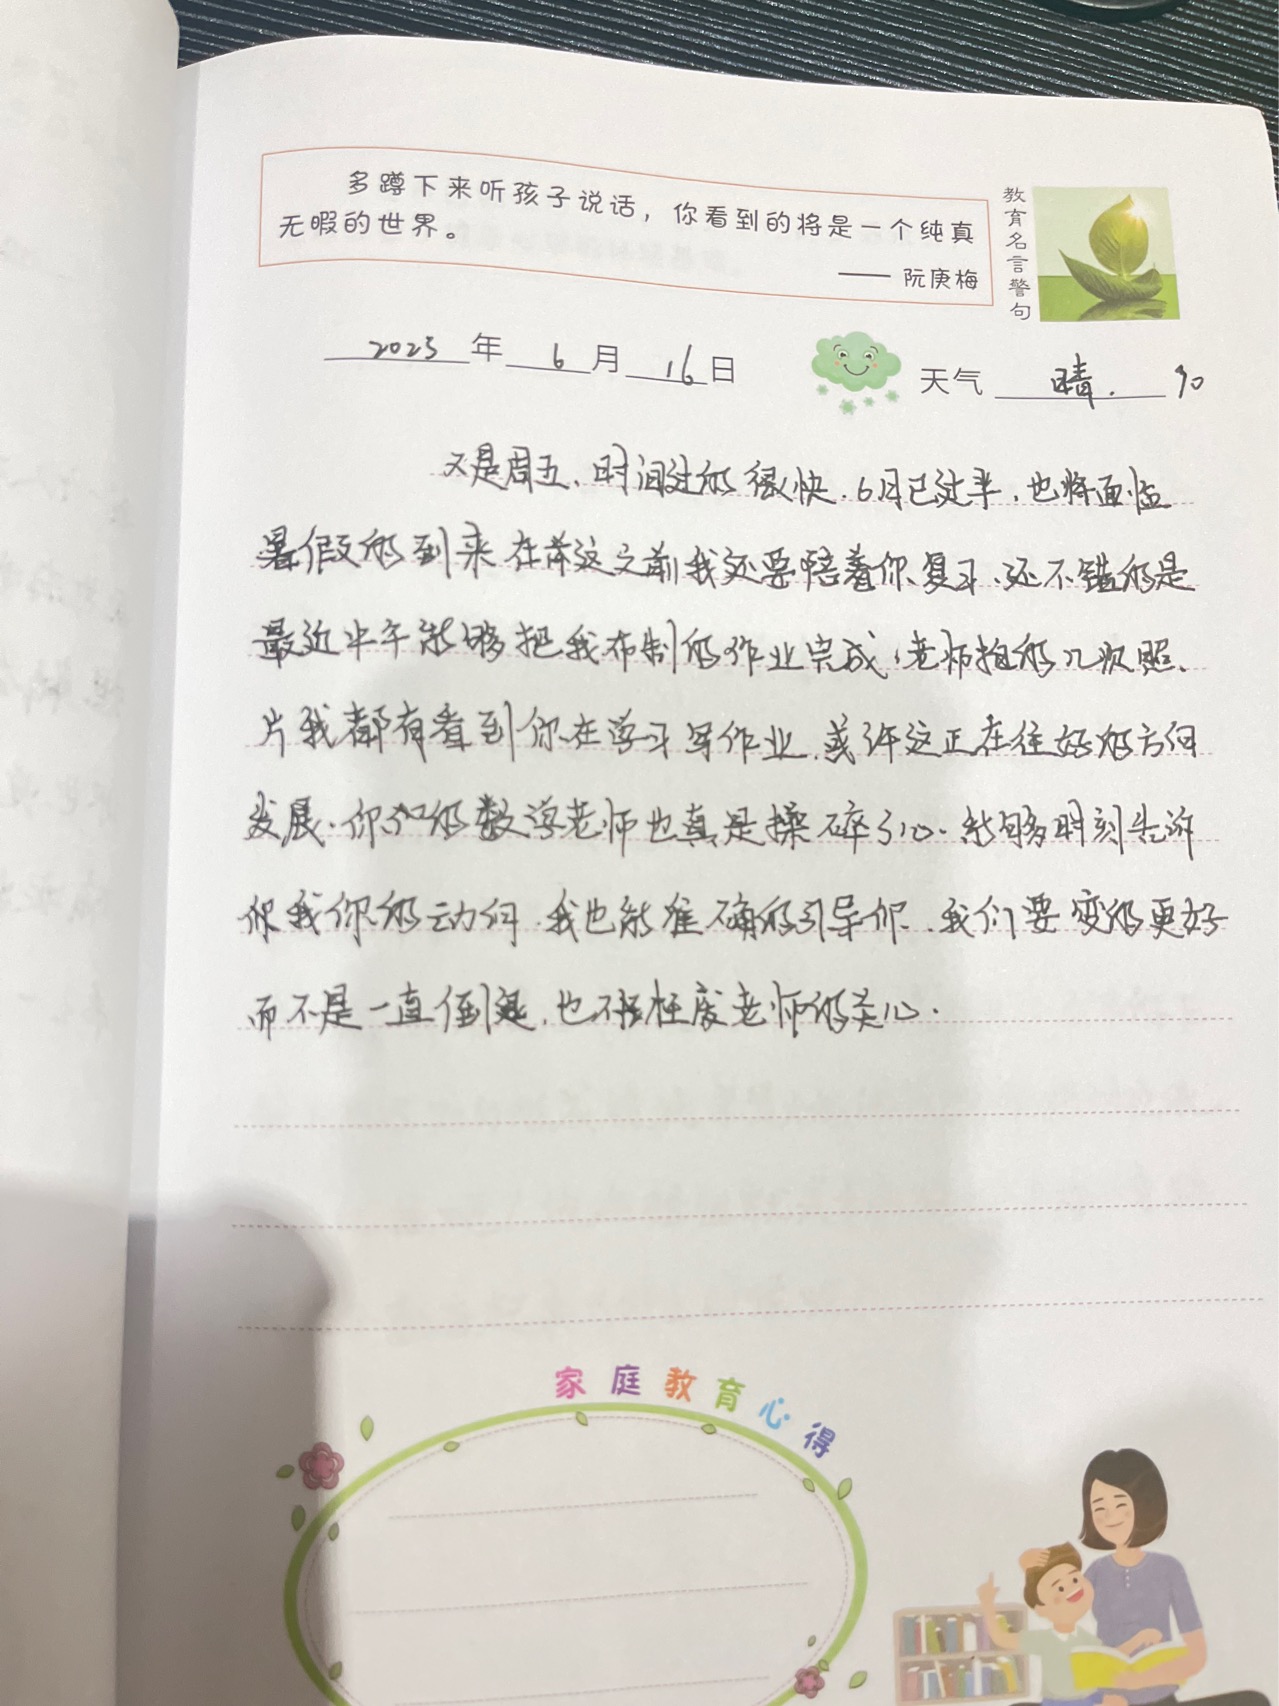 多蹲下来听孩子说话，你看到的将是一个纯真
无暇的世界。
—— 阮庚梅
教育名言警句
2023年6月16日
天气 晴.
又是周五、时间过的很快.6月已过半,也将面临
暑假的到来 在这之前我还要陪着你复习、还不错的是
最近中午能够把我布制的作业完成,老师拍的几次照
片我都有看到你在学习写作业.或许这正在往好的方向
发展.你们的数学老师也真是操碎了心.能够时刻告诉
我你的动向.我也能准确的引导你.我们要变的更好
而不是一直倒退.也不枉废老师的关心.
家庭教育心得